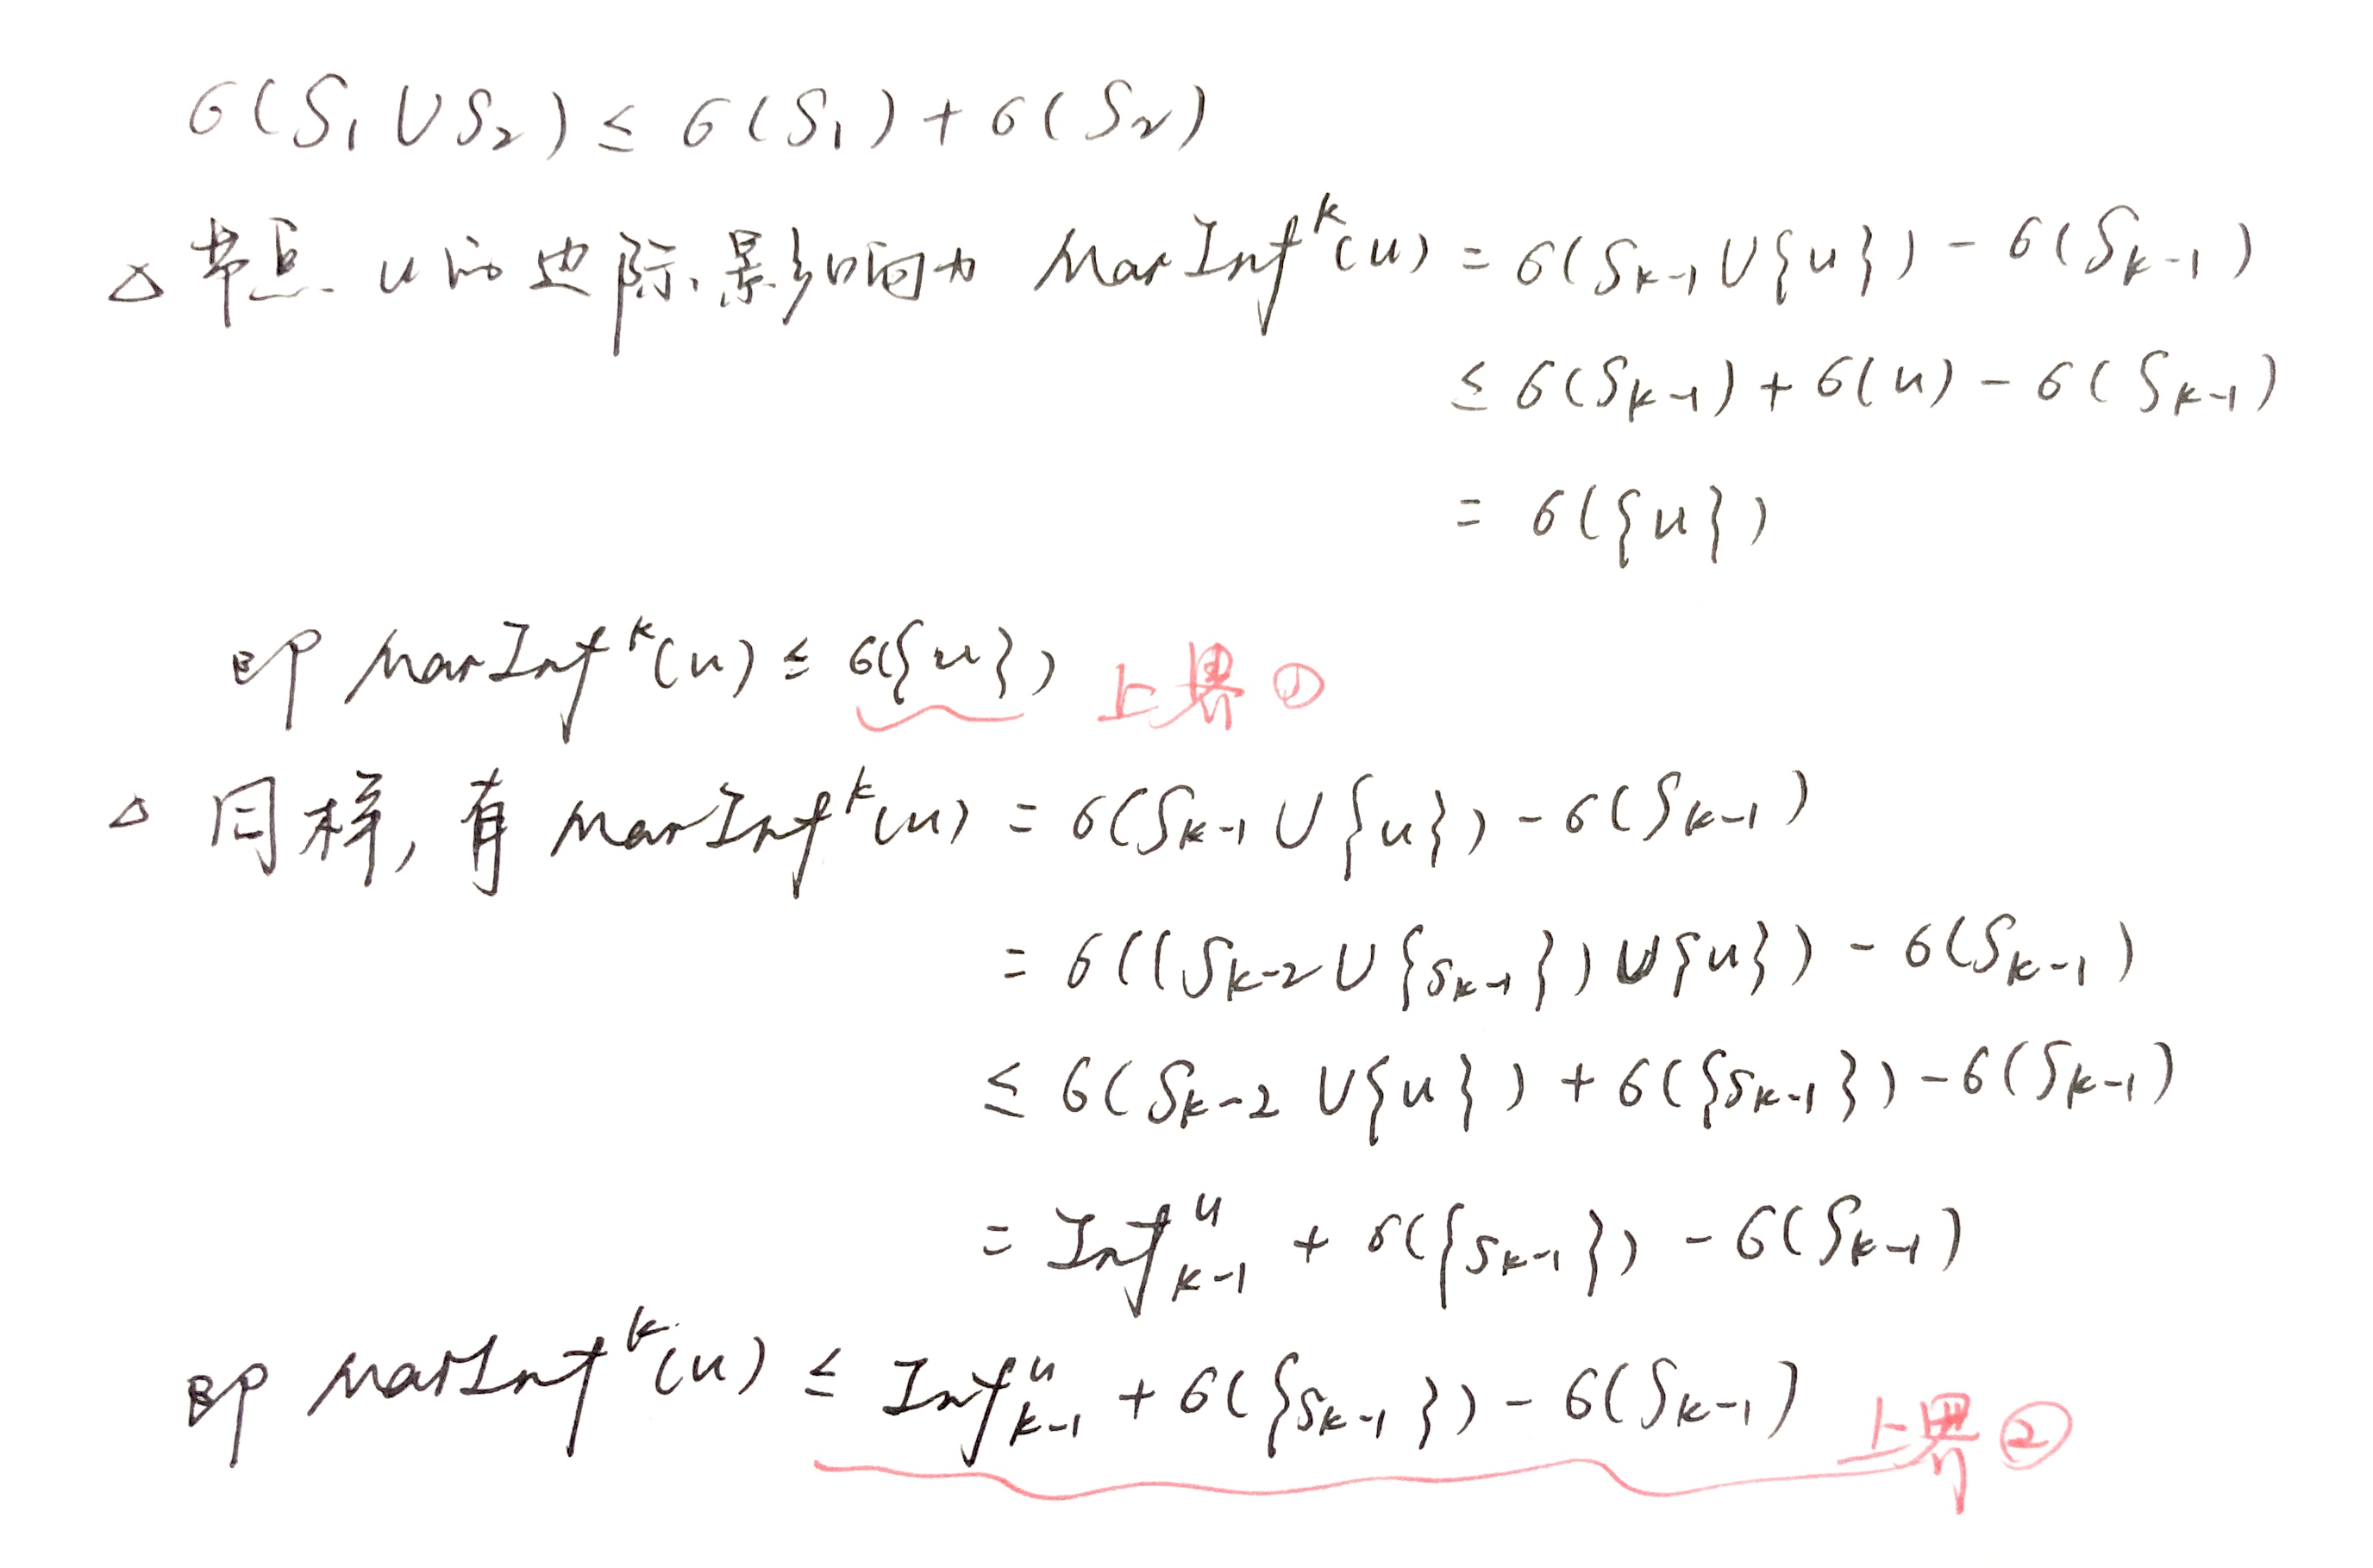 σ(S₁∪S₂) ≤ σ(S₁) + σ(S₂)
△ 节点 u 的边际影响力 MarInfᵏ(u) = σ(Sₖ₋₁∪{u}) - σ(Sₖ₋₁)
≤ σ(Sₖ₋₁) + σ(u) - σ(Sₖ₋₁)
= σ({u})
即 MarInfᵏ(u) ≤ σ({u}) 上界①
△ 同样, 有 MarInfᵏ(u) = σ(Sₖ₋₁∪{u}) - σ(Sₖ₋₁)
= σ((Sₖ₋₂∪{sₖ₋₁})∪{u}) - σ(Sₖ₋₁)
≤ σ(Sₖ₋₂∪{u}) + σ({sₖ₋₁}) - σ(Sₖ₋₁)
= Infᵘₖ₋₁ + σ({sₖ₋₁}) - σ(Sₖ₋₁)
即 MarInfᵏ(u) ≤ Infᵘₖ₋₁ + σ({sₖ₋₁}) - σ(Sₖ₋₁) 上界②